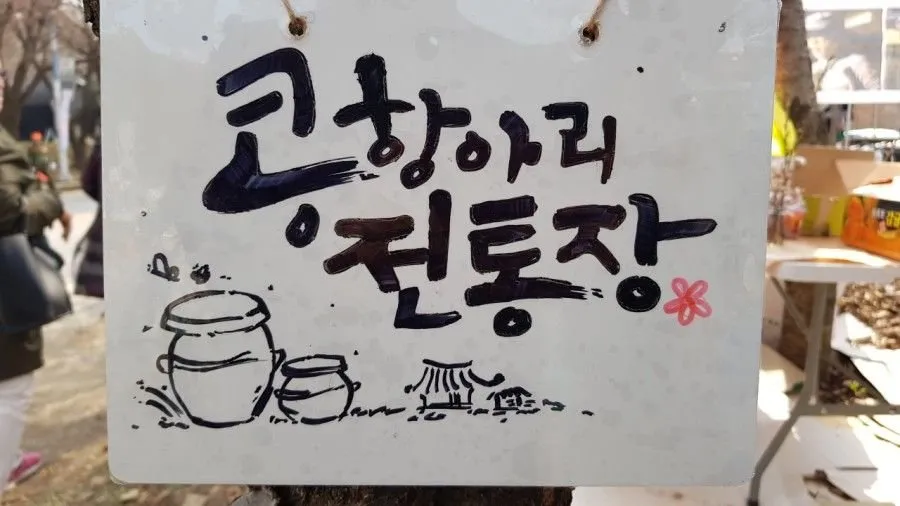 콩항아리
전통장